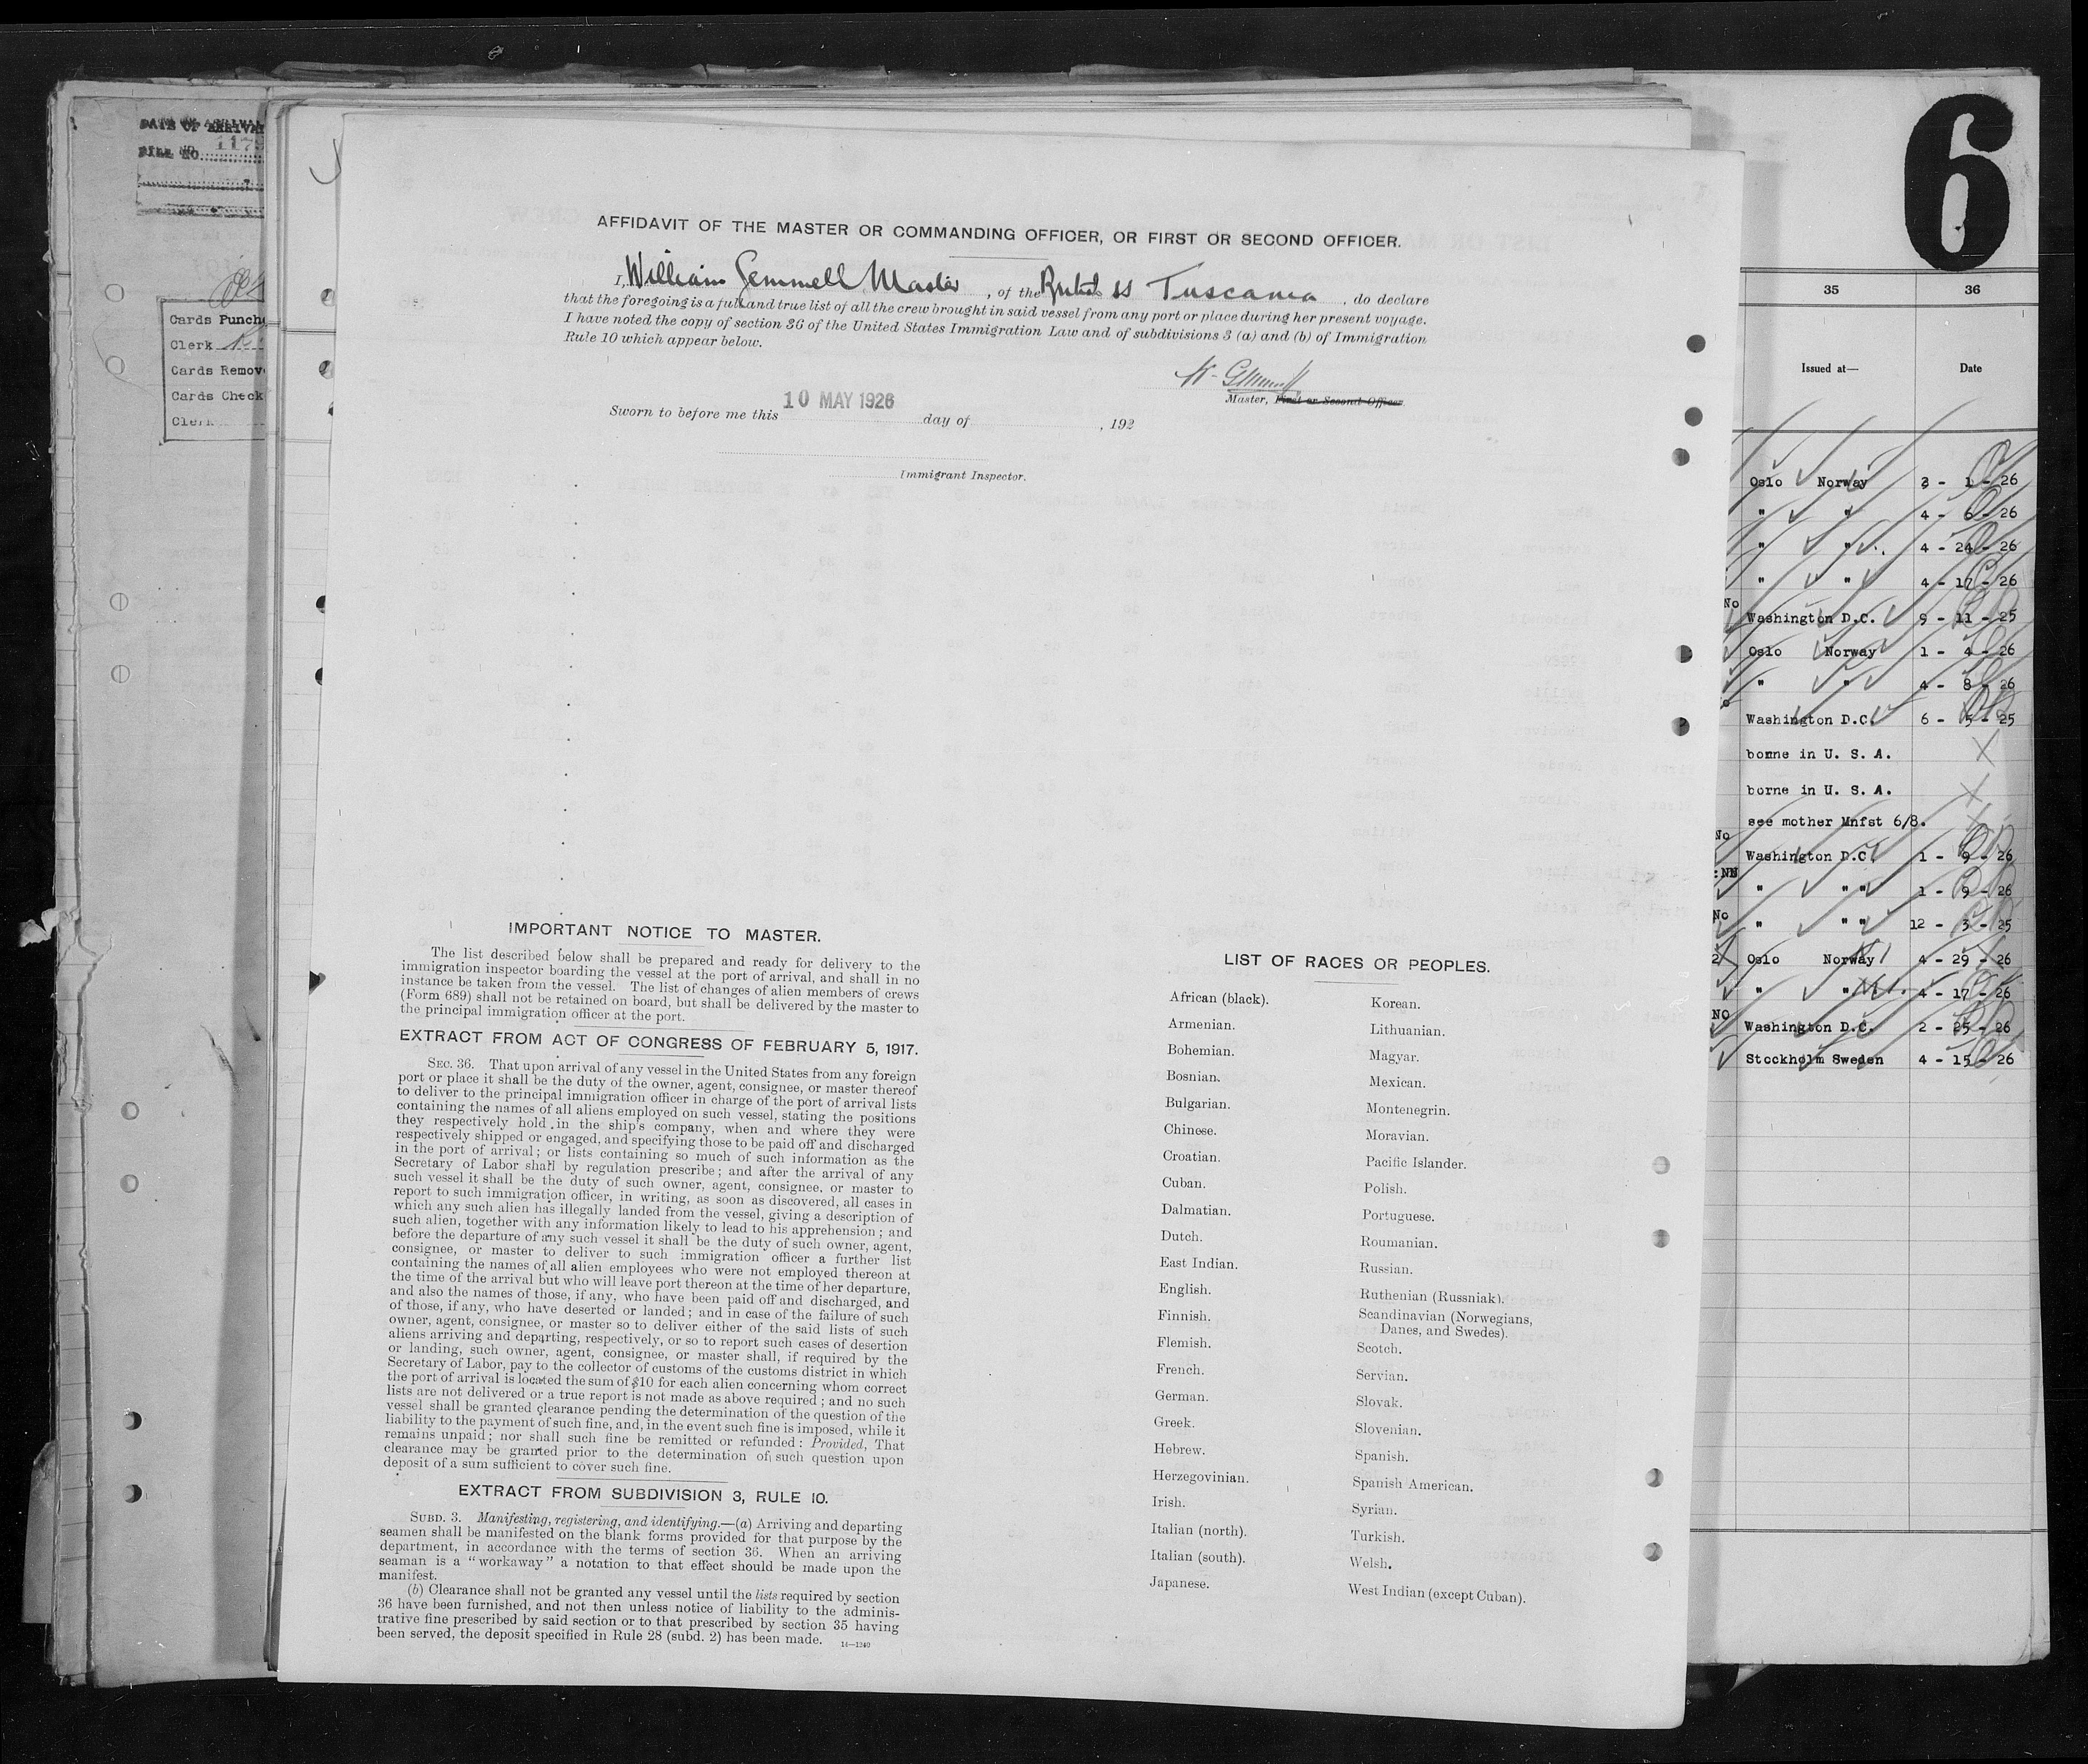 DATE OF ARRIVAL
FILE NO. 1179
Cards Punch
Clerk
Cards Remov
Cards Check
Clerk
AFFIDAVIT OF THE MASTER OR COMMANDING OFFICER, OR FIRST OR SECOND OFFICER.
I, William Gemmell Master, of the British SS Tuscania, do declare
that the foregoing is a full and true list of all the crew brought in said vessel from any port or place during her present voyage.
I have noted the copy of section 36 of the United States Immigration Law and of subdivisions 3 (a) and (b) of Immigration
Rule 10 which appear below.
W. Gemmell
Master, First or Second Officer.
Sworn to before me this 10 MAY 1926 day of , 192
Immigrant Inspector.
IMPORTANT NOTICE TO MASTER.
The list described below shall be prepared and ready for delivery to the
immigration inspector boarding the vessel at the port of arrival, and shall in no
instance be taken from the vessel. The list of changes of alien members of crews
(Form 689) shall not be retained on board, but shall be delivered by the master to
the principal immigration officer at the port.
EXTRACT FROM ACT OF CONGRESS OF FEBRUARY 5, 1917.
SEC. 36. That upon arrival of any vessel in the United States from any foreign
port or place it shall be the duty of the owner, agent, consignee, or master thereof
to deliver to the principal immigration officer in charge of the port of arrival lists
containing the names of all aliens employed on such vessel, stating the positions
they respectively hold in the ship's company, when and where they were
respectively shipped or engaged, and specifying those to be paid off and discharged
in the port of arrival; or lists containing so much of such information as the
Secretary of Labor shall by regulation prescribe; and after the arrival of any
such vessel it shall be the duty of such owner, agent, consignee, or master to
report to such immigration officer, in writing, as soon as discovered, all cases in
which any such alien has illegally landed from the vessel, giving a description of
such alien, together with any information likely to lead to his apprehension; and
before the departure of any such vessel it shall be the duty of such owner, agent,
consignee, or master to deliver to such immigration officer a further list
containing the names of all alien employees who were not employed thereon at
the time of the arrival but who will leave port thereon at the time of her departure,
and also the names of those, if any, who have been paid off and discharged, and
of those, if any, who have deserted or landed; and in case of the failure of such
owner, agent, consignee, or master so to deliver either of the said lists of such
aliens arriving and departing, respectively, or so to report such cases of desertion
or landing, such owner, agent, consignee, or master shall, if required by the
Secretary of Labor, pay to the collector of customs of the customs district in which
the port of arrival is located the sum of $10 for each alien concerning whom correct
lists are not delivered or a true report is not made as above required; and no such
vessel shall be granted clearance pending the determination of the question of the
liability to the payment of such fine, and, in the event such fine is imposed, while it
remains unpaid; nor shall such fine be remitted or refunded: Provided, That
clearance may be granted prior to the determination of such question upon
deposit of a sum sufficient to cover such fine.
EXTRACT FROM SUBDIVISION 3, RULE 10.
SUBD. 3. Manifesting, registering, and identifying.—(a) Arriving and departing
seamen shall be manifested on the blank forms provided for that purpose by the
department, in accordance with the terms of section 36. When an arriving
seaman is a "workaway" a notation to that effect should be made upon the
manifest.
(b) Clearance shall not be granted any vessel until the lists required by section
36 have been furnished, and not then unless notice of liability to the adminis-
trative fine prescribed by said section or to that prescribed by section 35 having
been served, the deposit specified in Rule 28 (subd. 2) has been made. 14—1240
LIST OF RACES OR PEOPLES.
African (black).
Armenian.
Bohemian.
Bosnian.
Bulgarian.
Chinese.
Croatian.
Cuban.
Dalmatian.
Dutch.
East Indian.
English.
Finnish.
Flemish.
French.
German.
Greek.
Hebrew.
Herzegovinian.
Irish.
Italian (north).
Italian (south).
Japanese.
Korean.
Lithuanian.
Magyar.
Mexican.
Montenegrin.
Moravian.
Pacific Islander.
Polish.
Portuguese.
Roumanian.
Russian.
Ruthenian (Russniak).
Scandinavian (Norwegians,
Danes, and Swedes).
Scotch.
Servian.
Slovak.
Slovenian.
Spanish.
Spanish American.
Syrian.
Turkish.
Welsh.
West Indian (except Cuban).
6
35 36
Issued at— Date
Oslo Norway 3 - 1 - 26
" " 4 - 6 - 26
" " 4 - 24 - 26
" " 4 - 17 - 26
No
Washington D.C. 9 - 11 - 25
Oslo Norway 1 - 4 - 26
" " 4 - 8 - 26
Washington D.C. 6 - 5 - 25
borne in U. S. A.
borne in U. S. A.
see mother Mnfst 6/8.
No
Washington D.C. 1 - 9 - 26
" " " 1 - 9 - 26
No
" " " 12 - 3 - 25
Oslo Norway 4 - 29 - 26
" " 4 - 17 - 26
NO
Washington D.C. 2 - 25 - 26
Stockholm Sweden 4 - 15 - 26